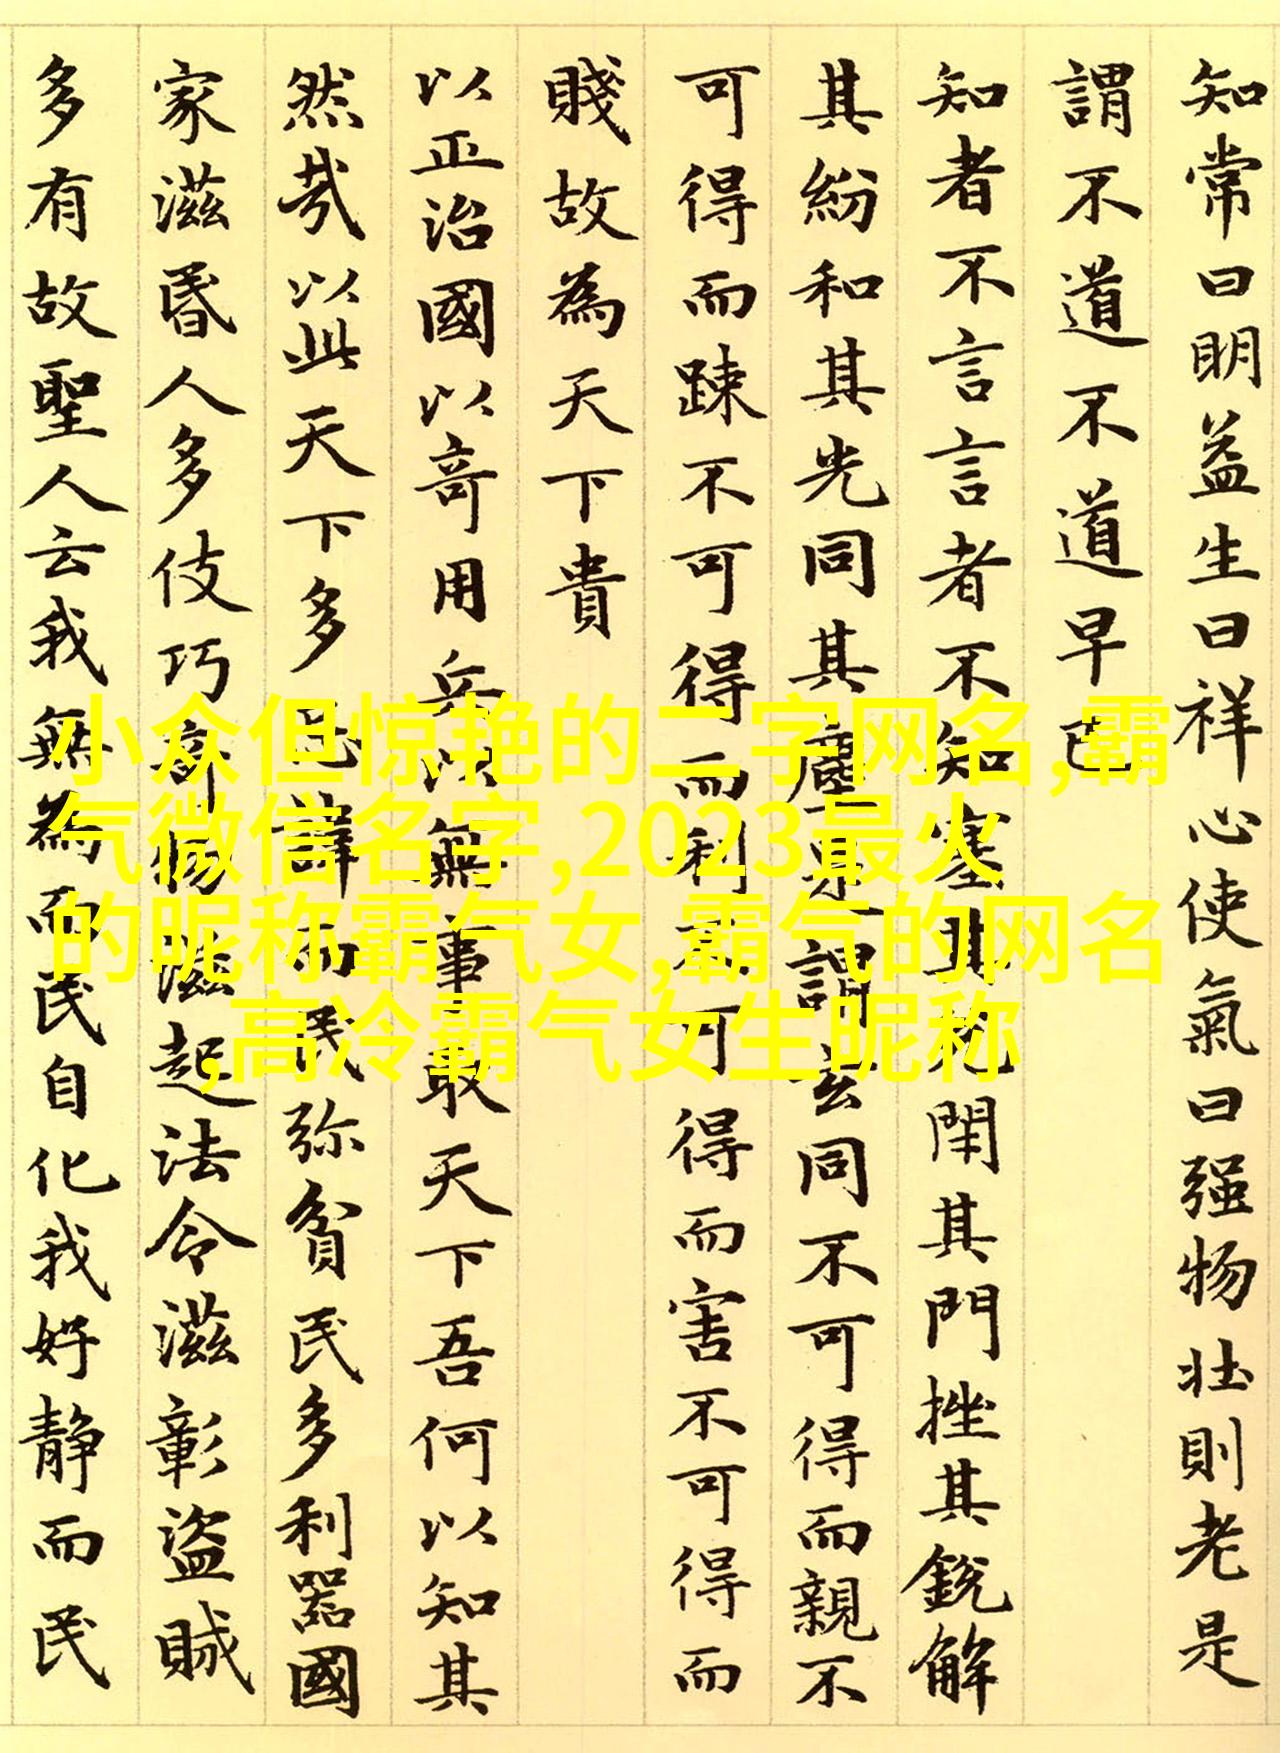 知常曰明益生曰祥心使氣曰强物壯則老是
謂不道不道早已
知者不言言者不知塞其兊閇其門挫其銳解
其紛和其光同其塵是謂玄同不可得而親不
可得而踈不可得而利不可得而害不可得而
賤故為天下貴
以正治國以奇用兵以無事取天下吾何以知其
然㢤以此天下多忌諱而民弥貧民多利器國
家滋昬人多伎巧奇物滋起法令滋彰盗賊
多有故聖人云我無為而民自化我好静而民
小众但惊艳的二字网名,霸
气微信名字,2023最火
的昵称霸气女,霸气的网名
,高冷霸气女生昵称